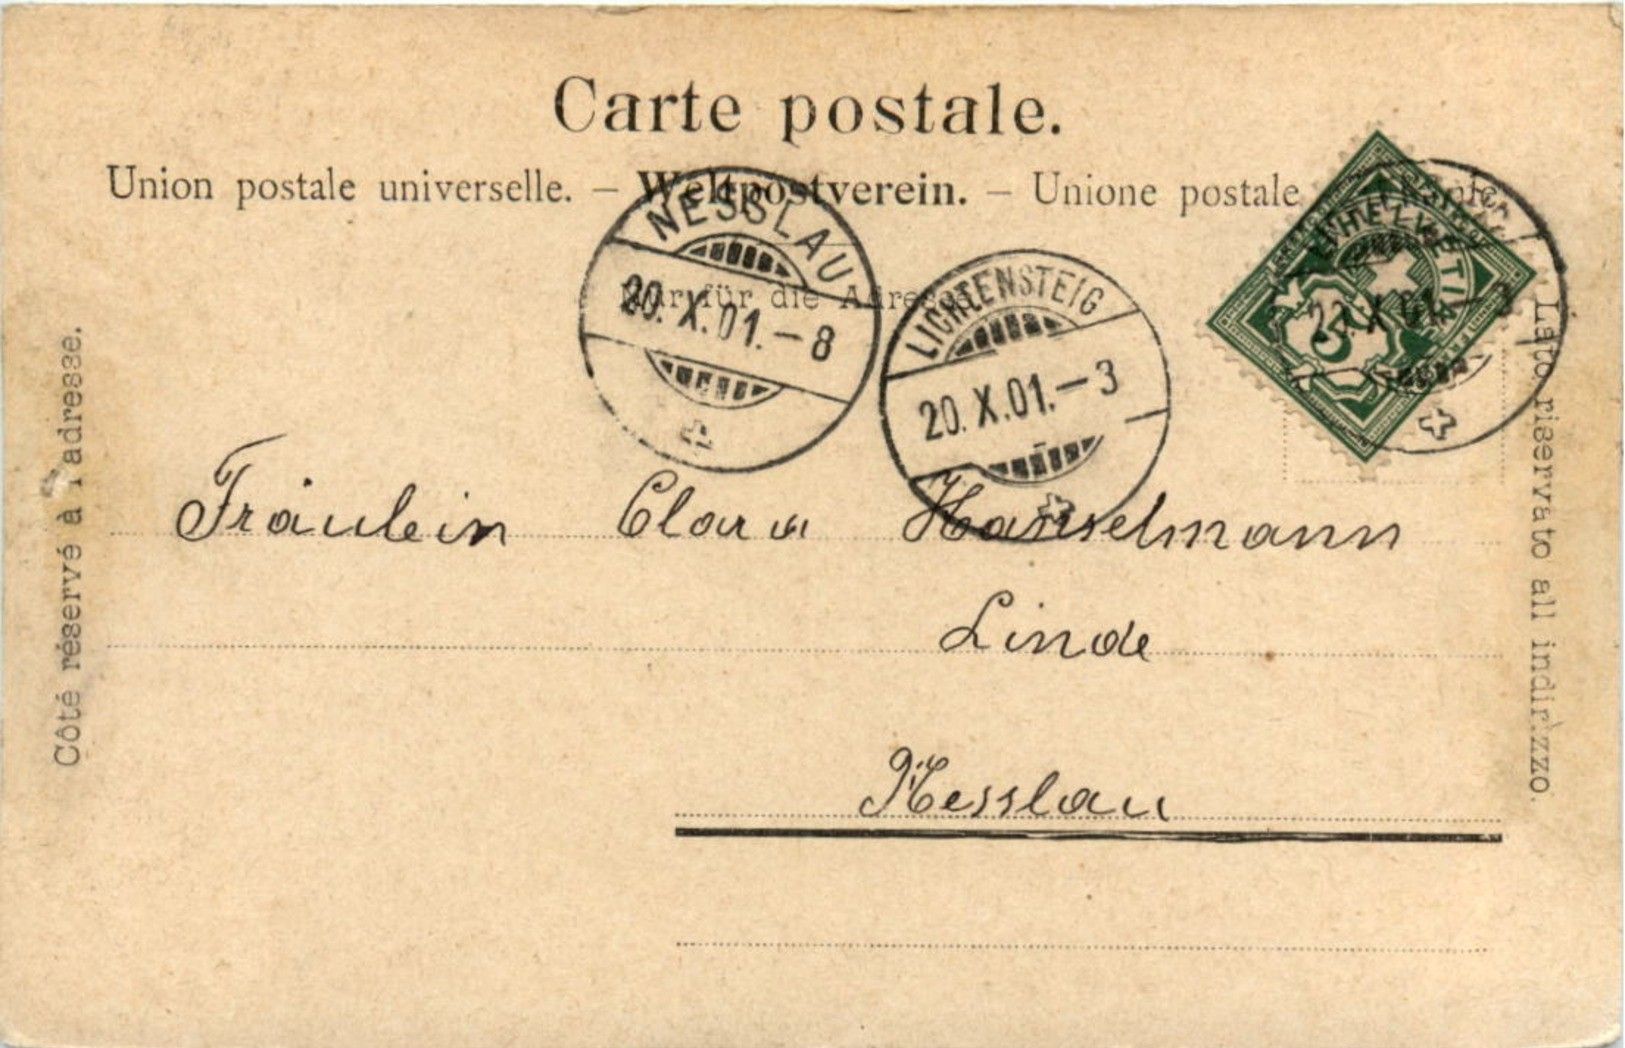 Carte postale.
Union postale universelle. – Weltpostverein. – Unione postale
Nur für die Adresse
NESSLAU
20. X. 01. – 8
LICHTENSTEIG
20. X. 01. – 3
HELVETIA
5
X 01. – 3
Côté réservé à l'adresse.
Lato riservato all indirizzo.
Fräulein Clara Hanselmann
Linde
Nesslau